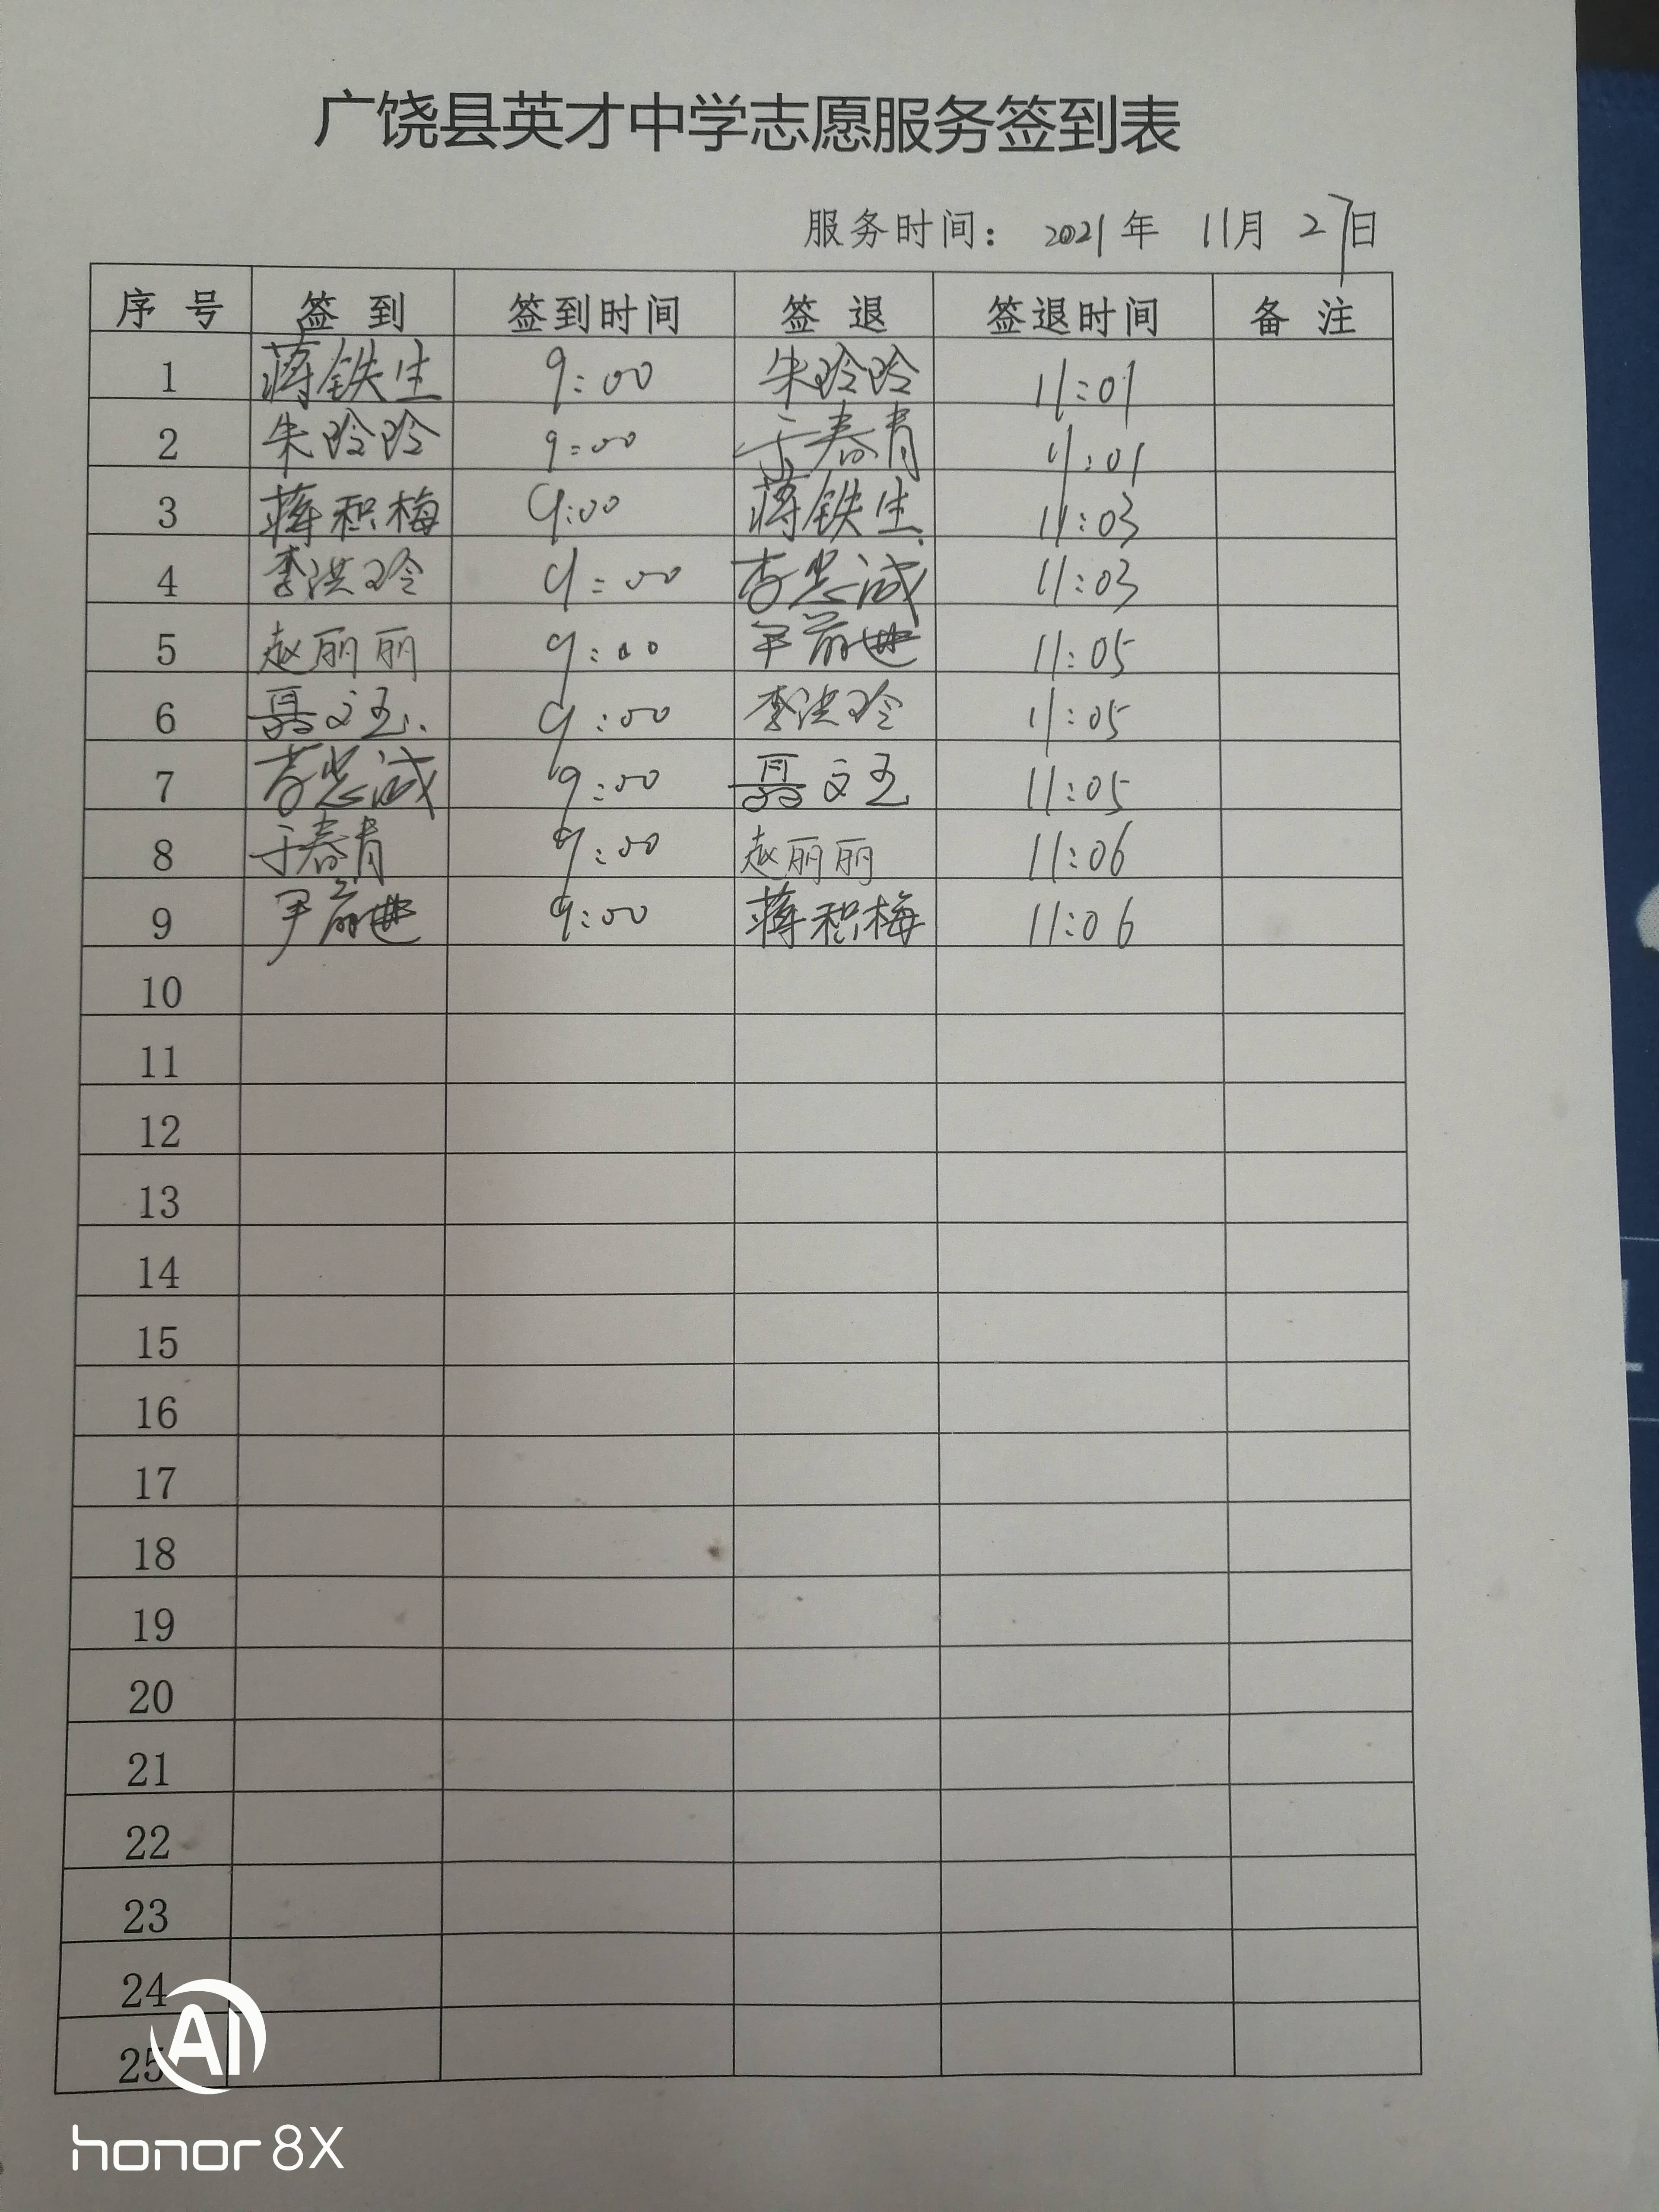 广饶县英才中学志愿服务签到表
服务时间： 2021年 11月 27日
序号 签到 签到时间 签退 签退时间 备注
1 蒋铁生 9:00 朱玲玲 11:01
2 朱玲玲 9:00 于春青 11:01
3 蒋积梅 9:00 蒋铁生 11:03
4 李洪玲 9:00 李忠诚 11:03
5 赵丽丽 9:00 11:05
6 聂文玉 9:00 李洪玲 11:05
7 李忠诚 9:00 聂文玉 11:05
8 于春青 9:00 赵丽丽 11:06
9 9:00 蒋积梅 11:06
10
11
12
13
14
15
16
17
18
19
20
21
22
23
24
25
AI
honor 8X